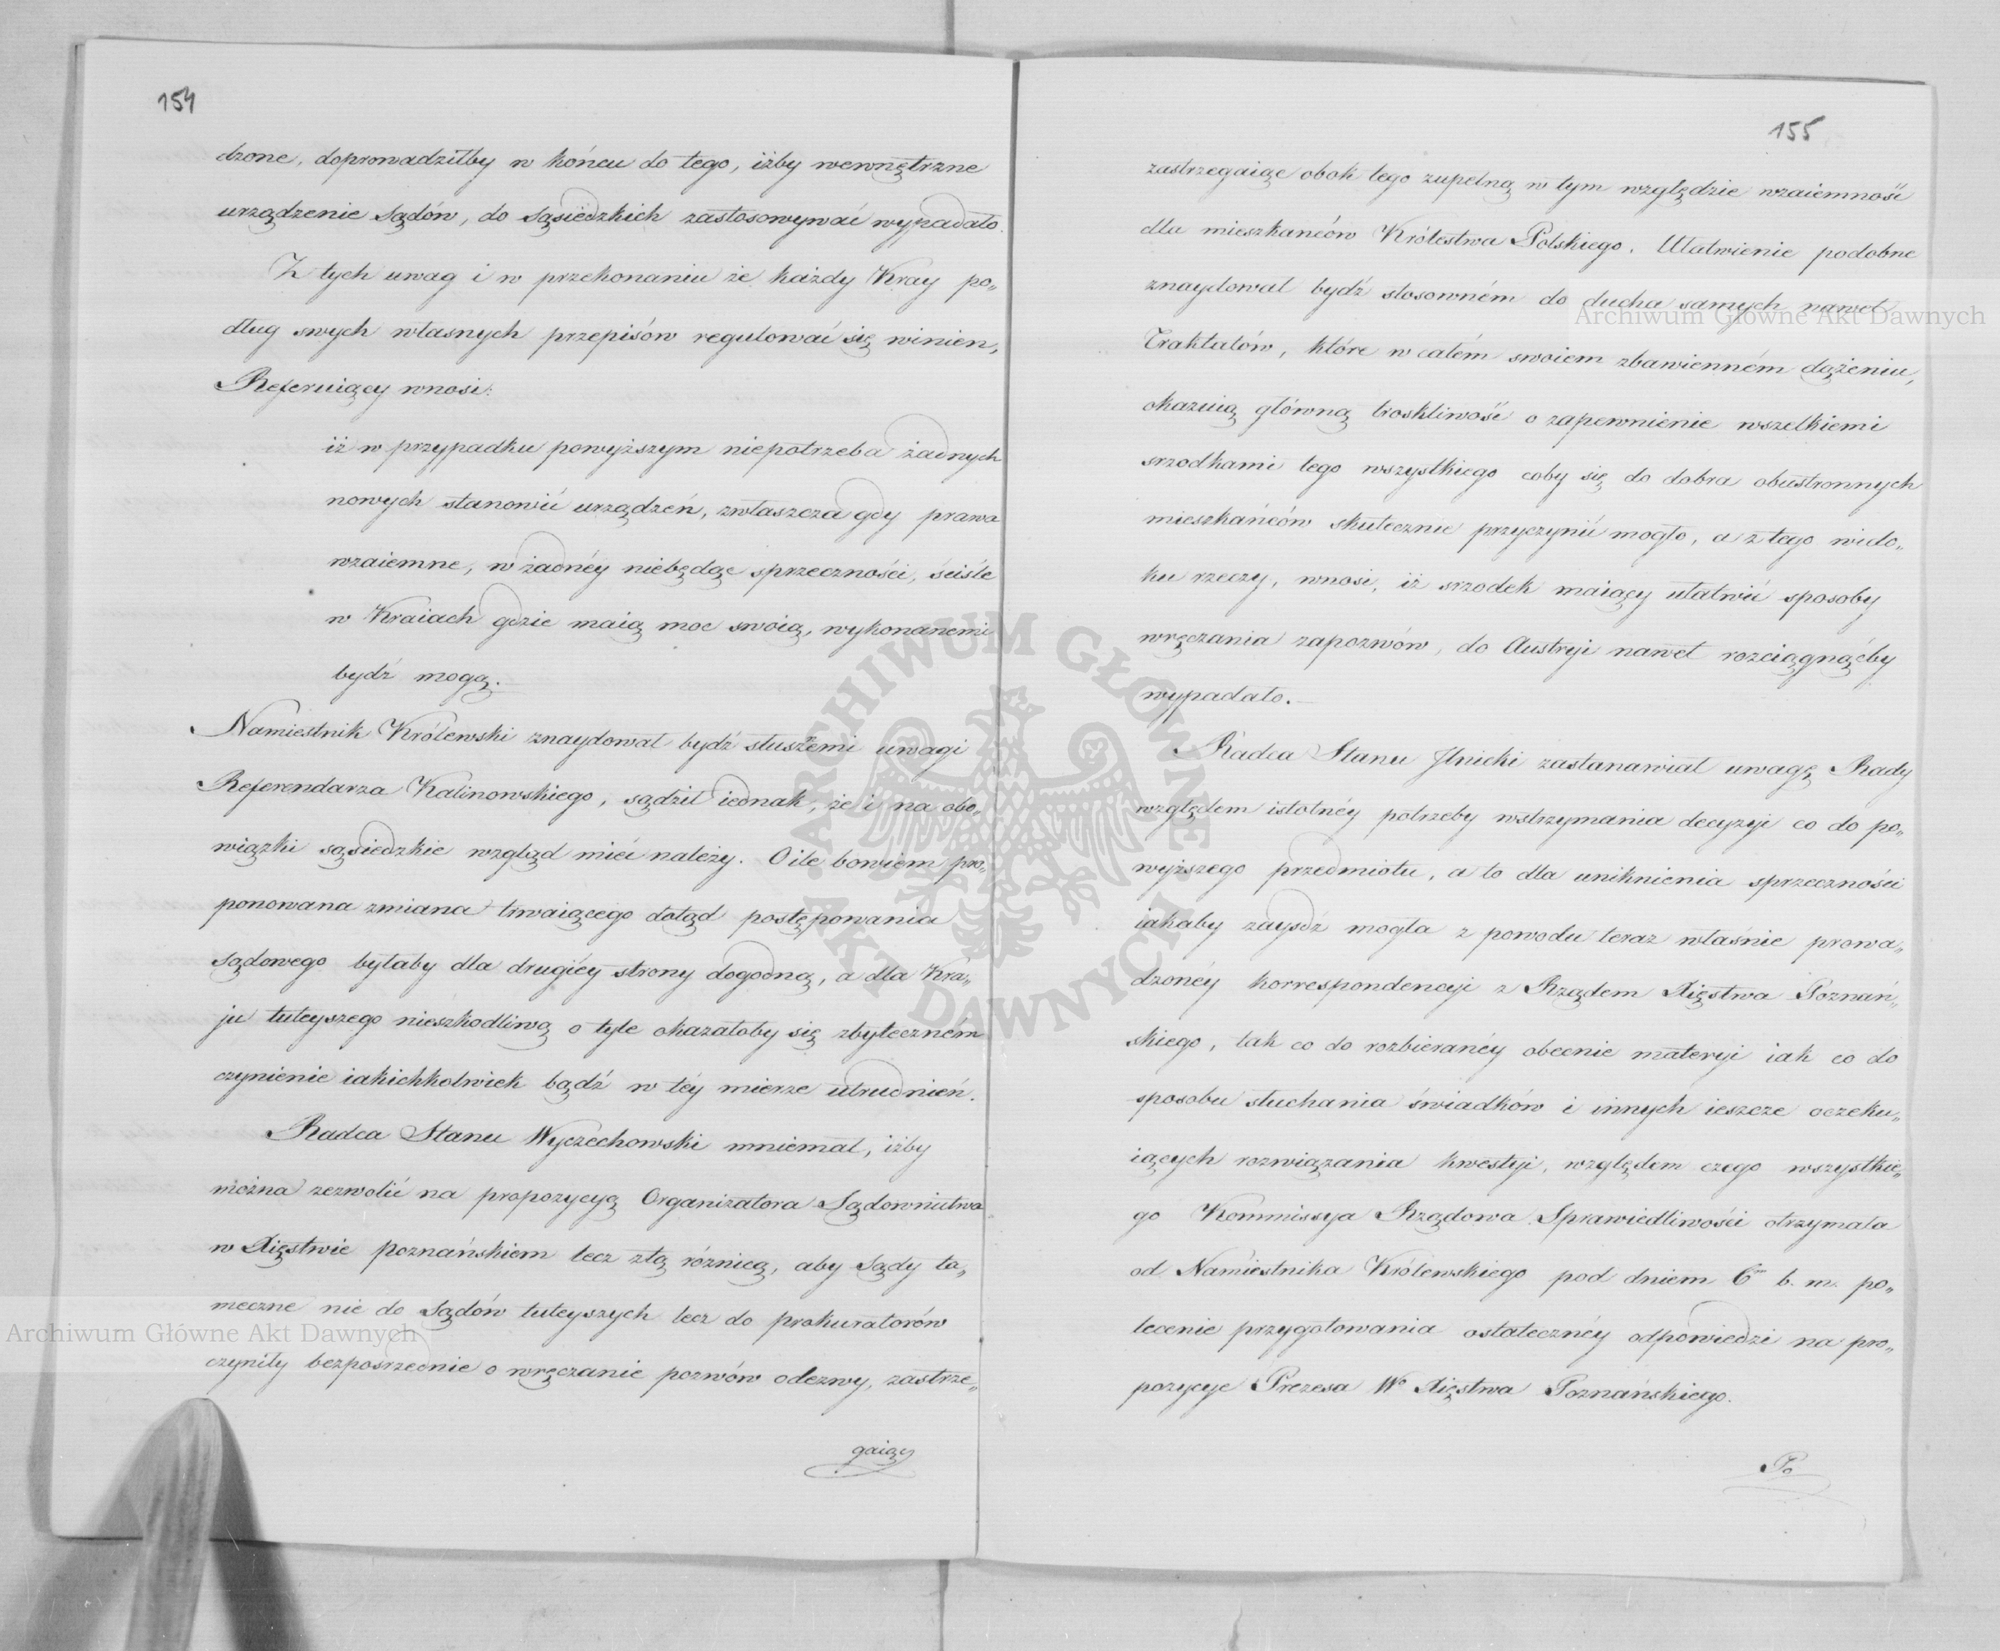 154
dzone, doprowadziłby w końcu do tego, iżby wewnętrzne
urządzenie Sądów, do Sąsiedzkich zastosowywać wypadało.
Z tych uwag i w przekonaniu że każdy Kray po„
dług swych własnych przepisów regulować się winien,
Referuiący wnosi:
iż w przypadku powyższym niepotrzeba żadnych
nowych stanowić urządzeń, zwłaszcza gdy prawa
wzaiemne, w żadnéy niebędąc sprzeczności, ściśle
w Kraiach gdzie maią moc swoią, wykonanemi
bydź mogą.
Namiestnik Królewski znaydował bydź słusznemi uwagi
Referendarza Kalinowskiego, sądził iednak, że i na obo„
wiązki sąsiedzkie wzgląd mieć należy. O ile bowiem pro„
ponowana zmiana trwaiącego dotąd postępowania
Sądowego byłaby dla drugiéy strony dogodną, a dla Kra„
ju tuteyszego nieszkodliwą o tyle okazałoby się zbyteczném
czynienie iakichkolwiek bądź w téy mierze utrudnień.
Radca Stanu Wyczechowski mniemał, iżby
można zezwolić na propozycyą Organizatora Sądownictwa
w Xięstwie poznańskiem lecz ztą różnicą, aby Sądy ta„
meczne nie do Sądów tuteyszych lecz do prokuratorów
czyniły bezpośrzednie o wręczanie pozwów odezwy, zastrze„
gaiąc
155
zastrzegaiąc obok tego zupełną w tym względzie wzaiemność
dla mieszkańców Królestwa Polskiego. Ułatwienie podobne
znaydował bydź stosowném do ducha samych nawet
Traktatów, które w całém swoiem zbawienném dążeniu,
okazuią główną troskliwość o zapewnienie wszelkiemi
srzodkami tego wszystkiego coby się do dobra obustronnych
mieszkańców skutecznie przyczynić mogło, a z tego wido„
ku rzeczy, wnosi, iż srzodek maiący ułatwić sposoby
wręczania zapozwów, do Austryi nawet rozciągnąćby
wypadało.
Radca Stanu Ilnicki zastanawiał uwagę Rady
względem istotnéy potrzeby wstrzymania decyzyi co do po„
wyższego przedmiotu, a to dla uniknienia sprzeczności
iakaby zayśdź mogła z powodu teraz właśnie prowa„
dzonéy korrespondencyi z Rządem Xięstwa Poznań„
skiego, tak co do rozbieranéy obecnie materyi iak co do
sposobu słuchania świadków i innych ieszcze oczeku„
iących rozwiązania kwestyi, względem czego wszystkie„
go Kommissya Rządowa Sprawiedliwości otrzymała
od Namiestnika Królewskiego pod dniem 6 b. m. po„
lecenie przygotowania ostatecznéy odpowiedzi na pro„
pozycye Prezesa Wo Xięstwa Poznańskiego.
Po
Archiwum Główne Akt Dawnych
Archiwum Główne Akt Dawnych
ARCHIWUM GŁÓWNE AKT DAWNYCH